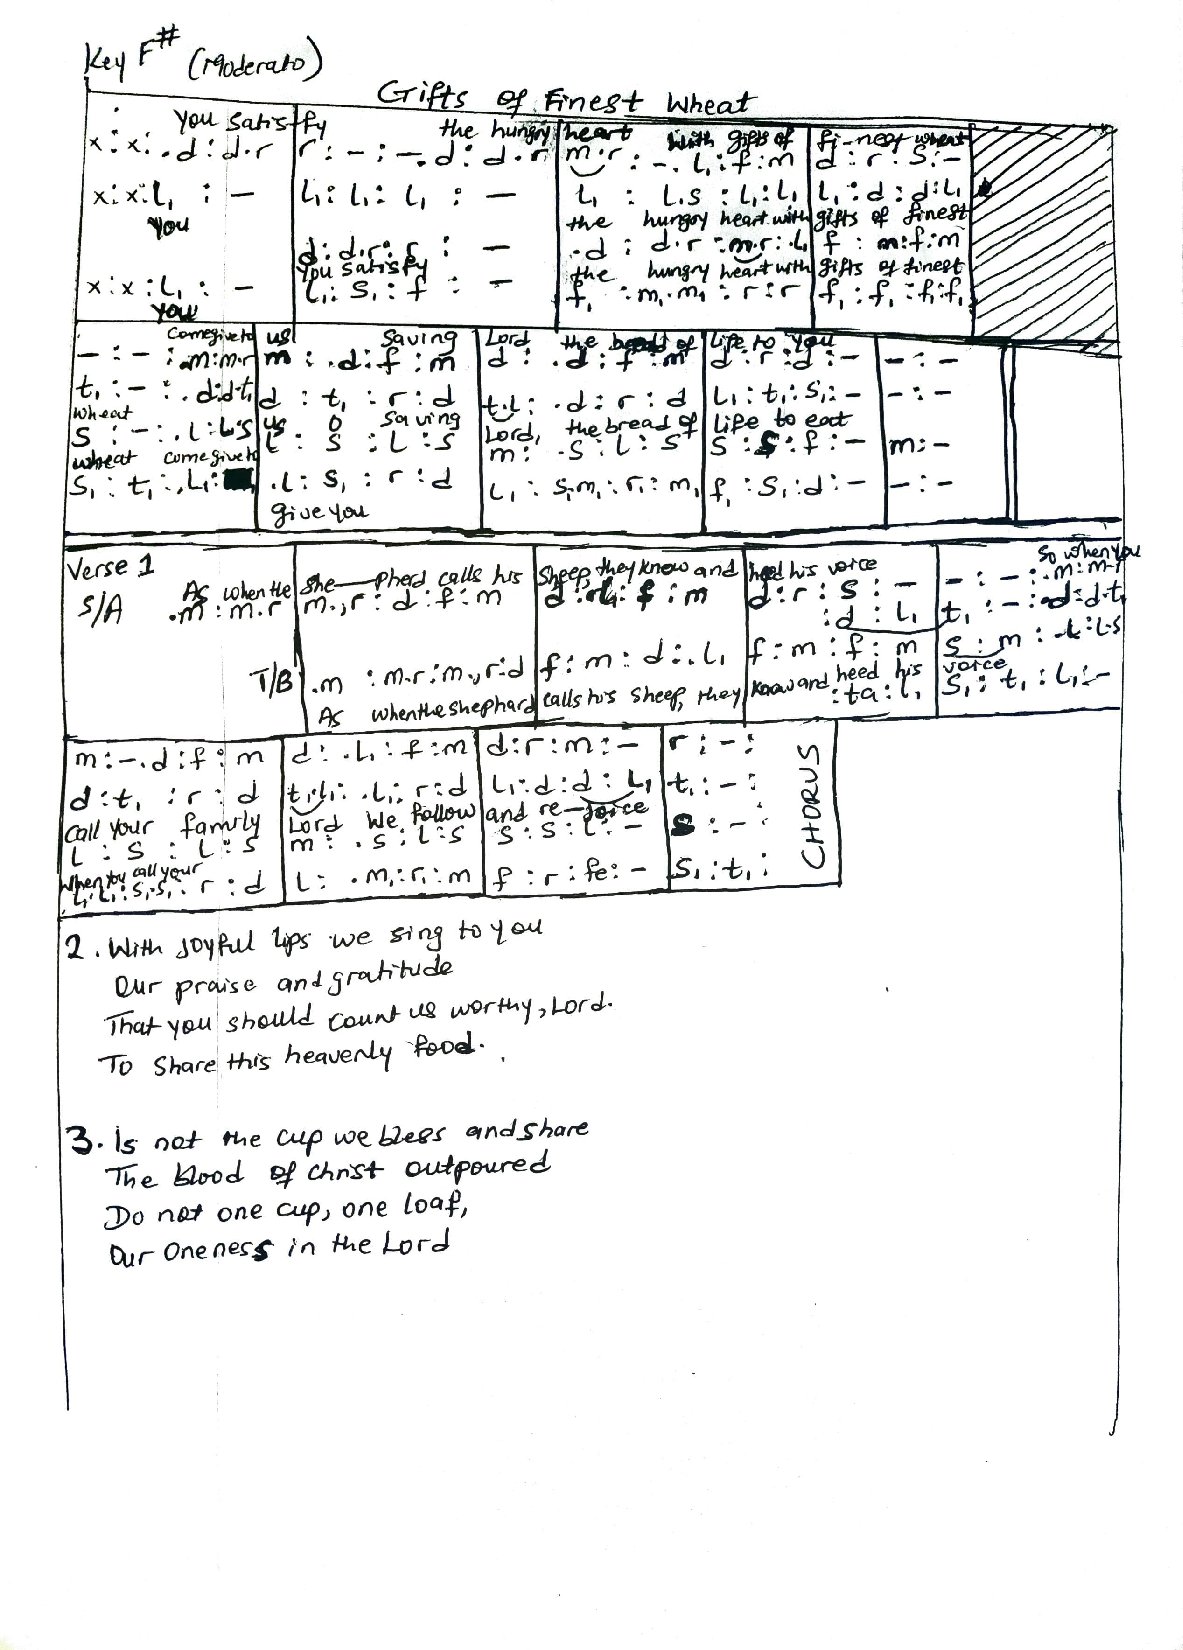 Key F# (Moderato)
Gifts of Finest Wheat
You satisfy the hungry heart with gifts of fi-nest wheat
x : x : . d : d . r | r : - : - . d : d . r | m . r : - . L₁ : f : m | d : r : S : -
x : x : L₁ : - | L₁ : L₁ : L₁ : - | L₁ : L.S : L₁ : L₁ | L₁ : d : d : L₁
You the hungry heart with gifts of finest
d : d . r : r : - | . d : d . r : m . r : . L₁ | f : m : f : m
You satisfy the hungry heart with gifts of finest
x : x : L₁ : - | L₁ : S₁ : f : - | f₁ : m₁ . m₁ : r : r | f₁ : f₁ : f₁ : f₁
You
come give to us saving Lord the bread of life to you
- : - : . m : m . r | m : . d : f : m | d : . d : f : m | d : r : d : - | - : -
t₁ : - : . d : d . t₁ | d : t₁ : r : d | t₁ L₁ : . d : r : d | L₁ : t₁ : S₁ : - | - : -
wheat us O saving Lord, the bread of life to eat
S : - : . L : L . S | L : S : L : S | m : . S : L : S | S : S : f : - | m : -
wheat come give to
S₁ : t₁ : . L₁ : | . L : S₁ : r : d | L₁ : S₁ m₁ : r₁ : m₁ | f₁ : S₁ : d : - | - : -
give you
Verse 1
So when you
As when the she—pherd calls his sheep, they know and heed his voice
S/A . m : m . r | m . , r : d : f : m | d : : f : m | d : r : S : - | - : - : . m : m . r
: d : L₁ | t₁ : - : . d : d . t₁
T/B . m : m . r : m . , r : d | f : m : d : . L₁ | f : m : f : m | S : m : . L : L . S
As when the shephard calls his sheep, they know and heed his voice
: ta : L₁ | S₁ : t₁ : L₁ : -
m : - . d : f : m | d : . L₁ : f : m | d : r : m : - | r : - :
d : t₁ : r : d | t₁ L₁ : . L₁ : r : d | L₁ : d : d : L₁ | t₁ : - :
call your family Lord We follow and re-joice
L : S : L : S | m : . S : L : S | S : S : L : - | S : - :
When you call your
L₁ . L₁ : S₁ . S₁ : r : d | L : . m₁ : r₁ : m | f : r : fe : - | S₁ : t₁ :
CHORUS
2. With Joyful lips we sing to you
Our praise and gratitude
That you should count us worthy, Lord.
To Share this heavenly food.
3. Is not the cup we bless and share
The blood of Christ outpoured
Do not one cup, one loaf,
Our Oneness in the Lord